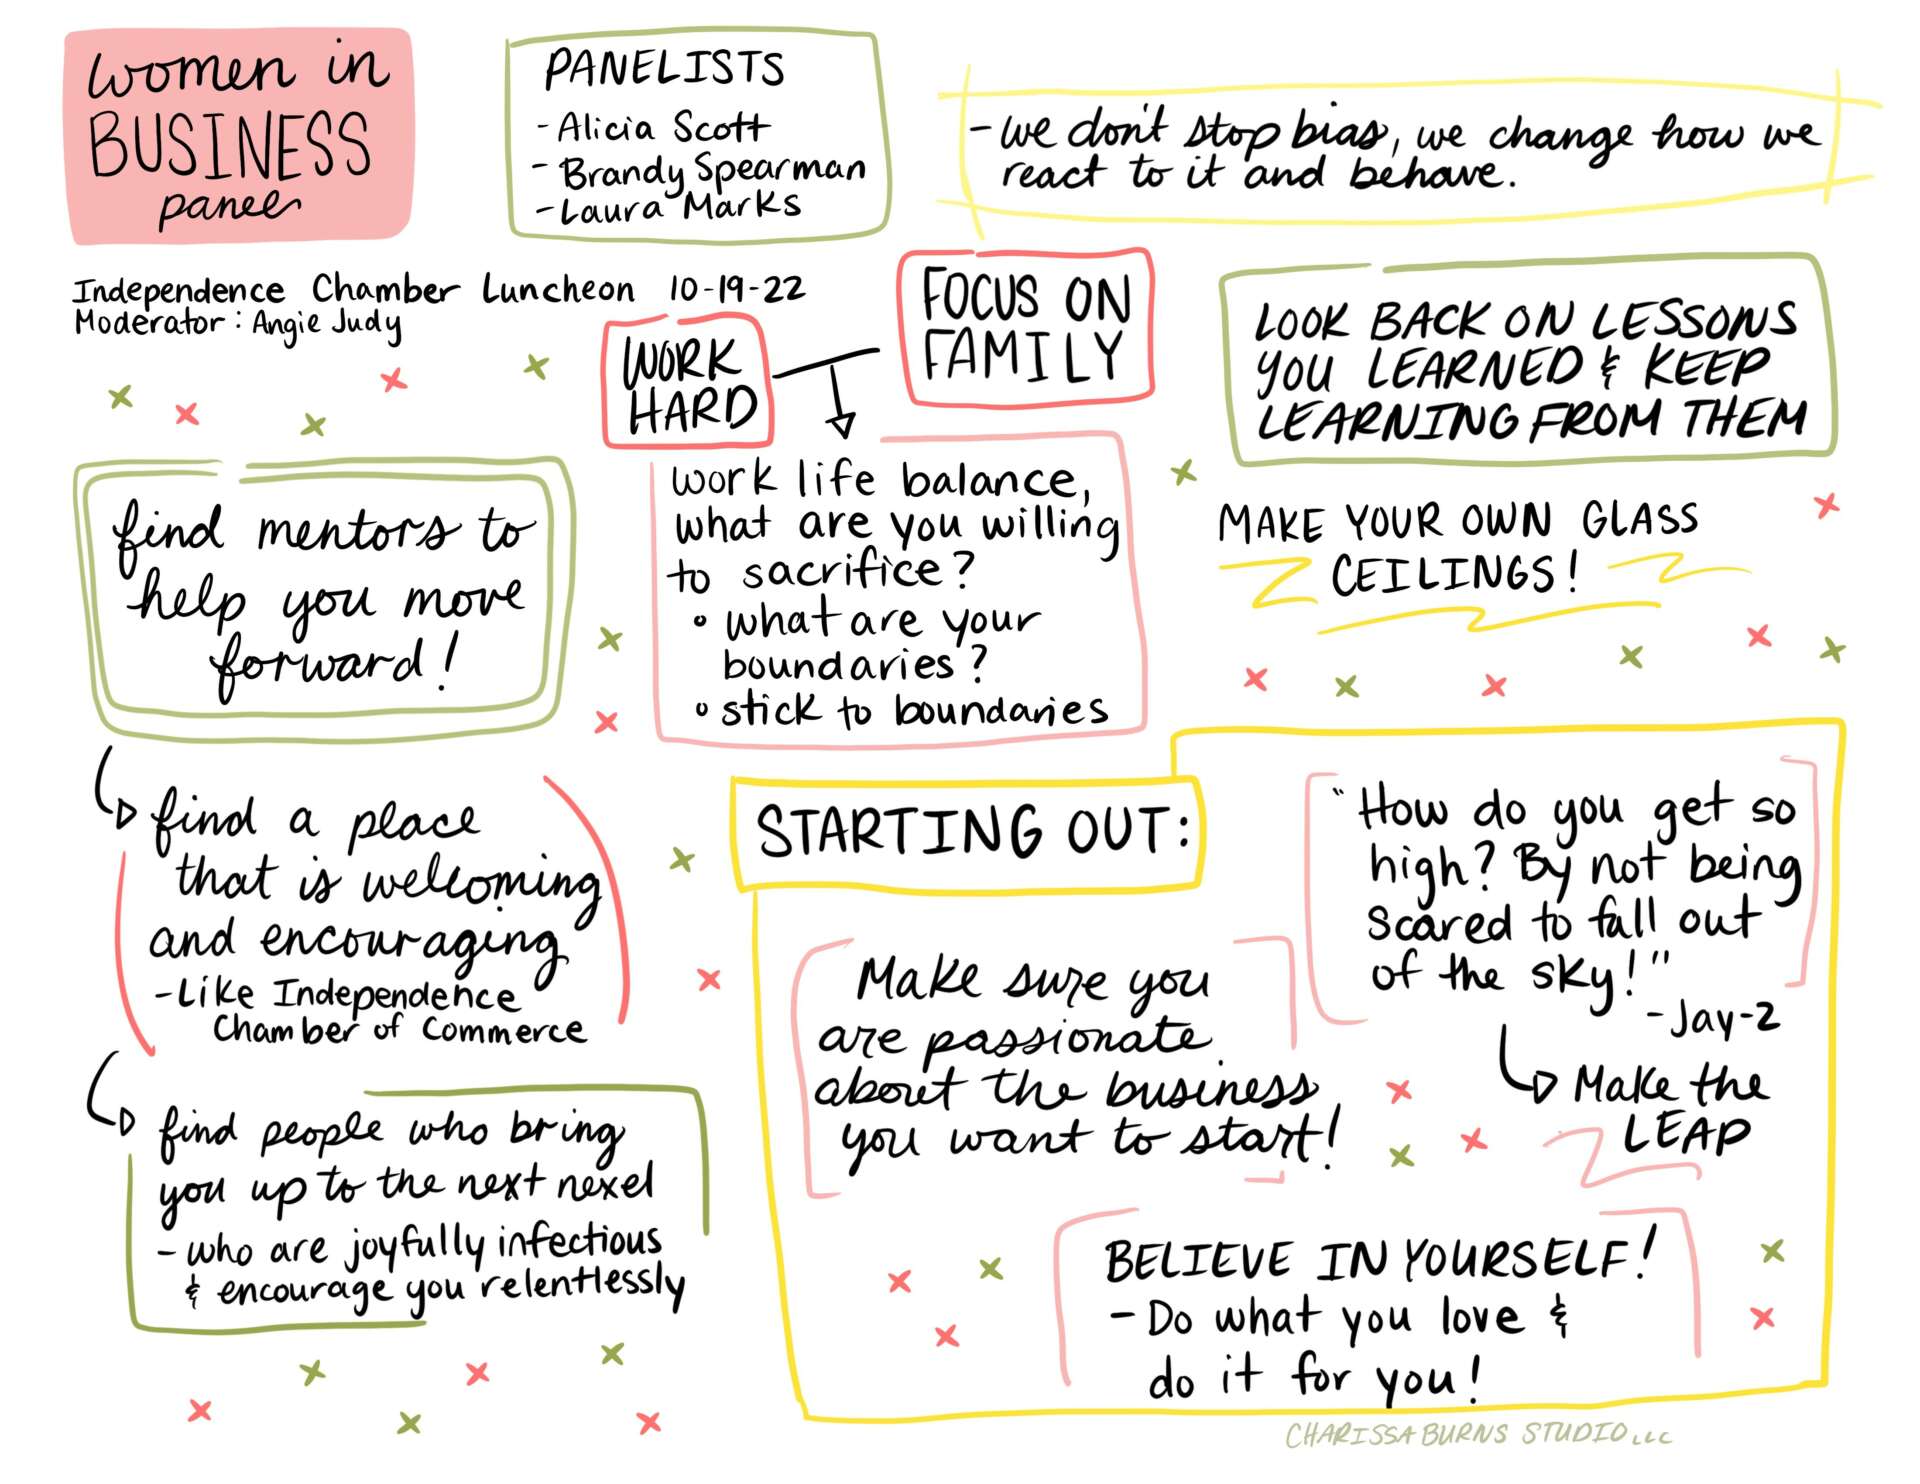 women in
BUSINESS
panel
PANELISTS
- Alicia Scott
- Brandy Spearman
- Laura Marks
- we don't stop bias, we change how we
react to it and behave.
Independence Chamber Luncheon 10-19-22
Moderator: Angie Judy
WORK
HARD
FOCUS ON
FAMILY
work life balance,
what are you willing
to sacrifice?
• what are your
boundaries?
• stick to boundaries
LOOK BACK ON LESSONS
YOU LEARNED & KEEP
LEARNING FROM THEM
MAKE YOUR OWN GLASS
CEILINGS!
find mentors to
help you move
forward!
find a place
that is welcoming
and encouraging
- Like Independence
Chamber of Commerce
find people who bring
you up to the next nexel
- who are joyfully infectious
& encourage you relentlessly
STARTING OUT:
Make sure you
are passionate
about the business
you want to start!
"How do you get so
high? By not being
scared to fall out
of the sky!"
- Jay-Z
Make the
LEAP
BELIEVE IN YOURSELF!
- Do what you love &
do it for you!
CHARISSA BURNS STUDIO LLC